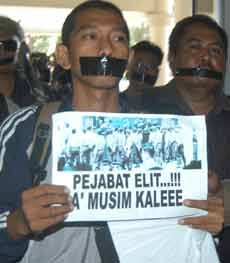 PEJABAT ELIT...!!!
A' MUSIM KALEEE